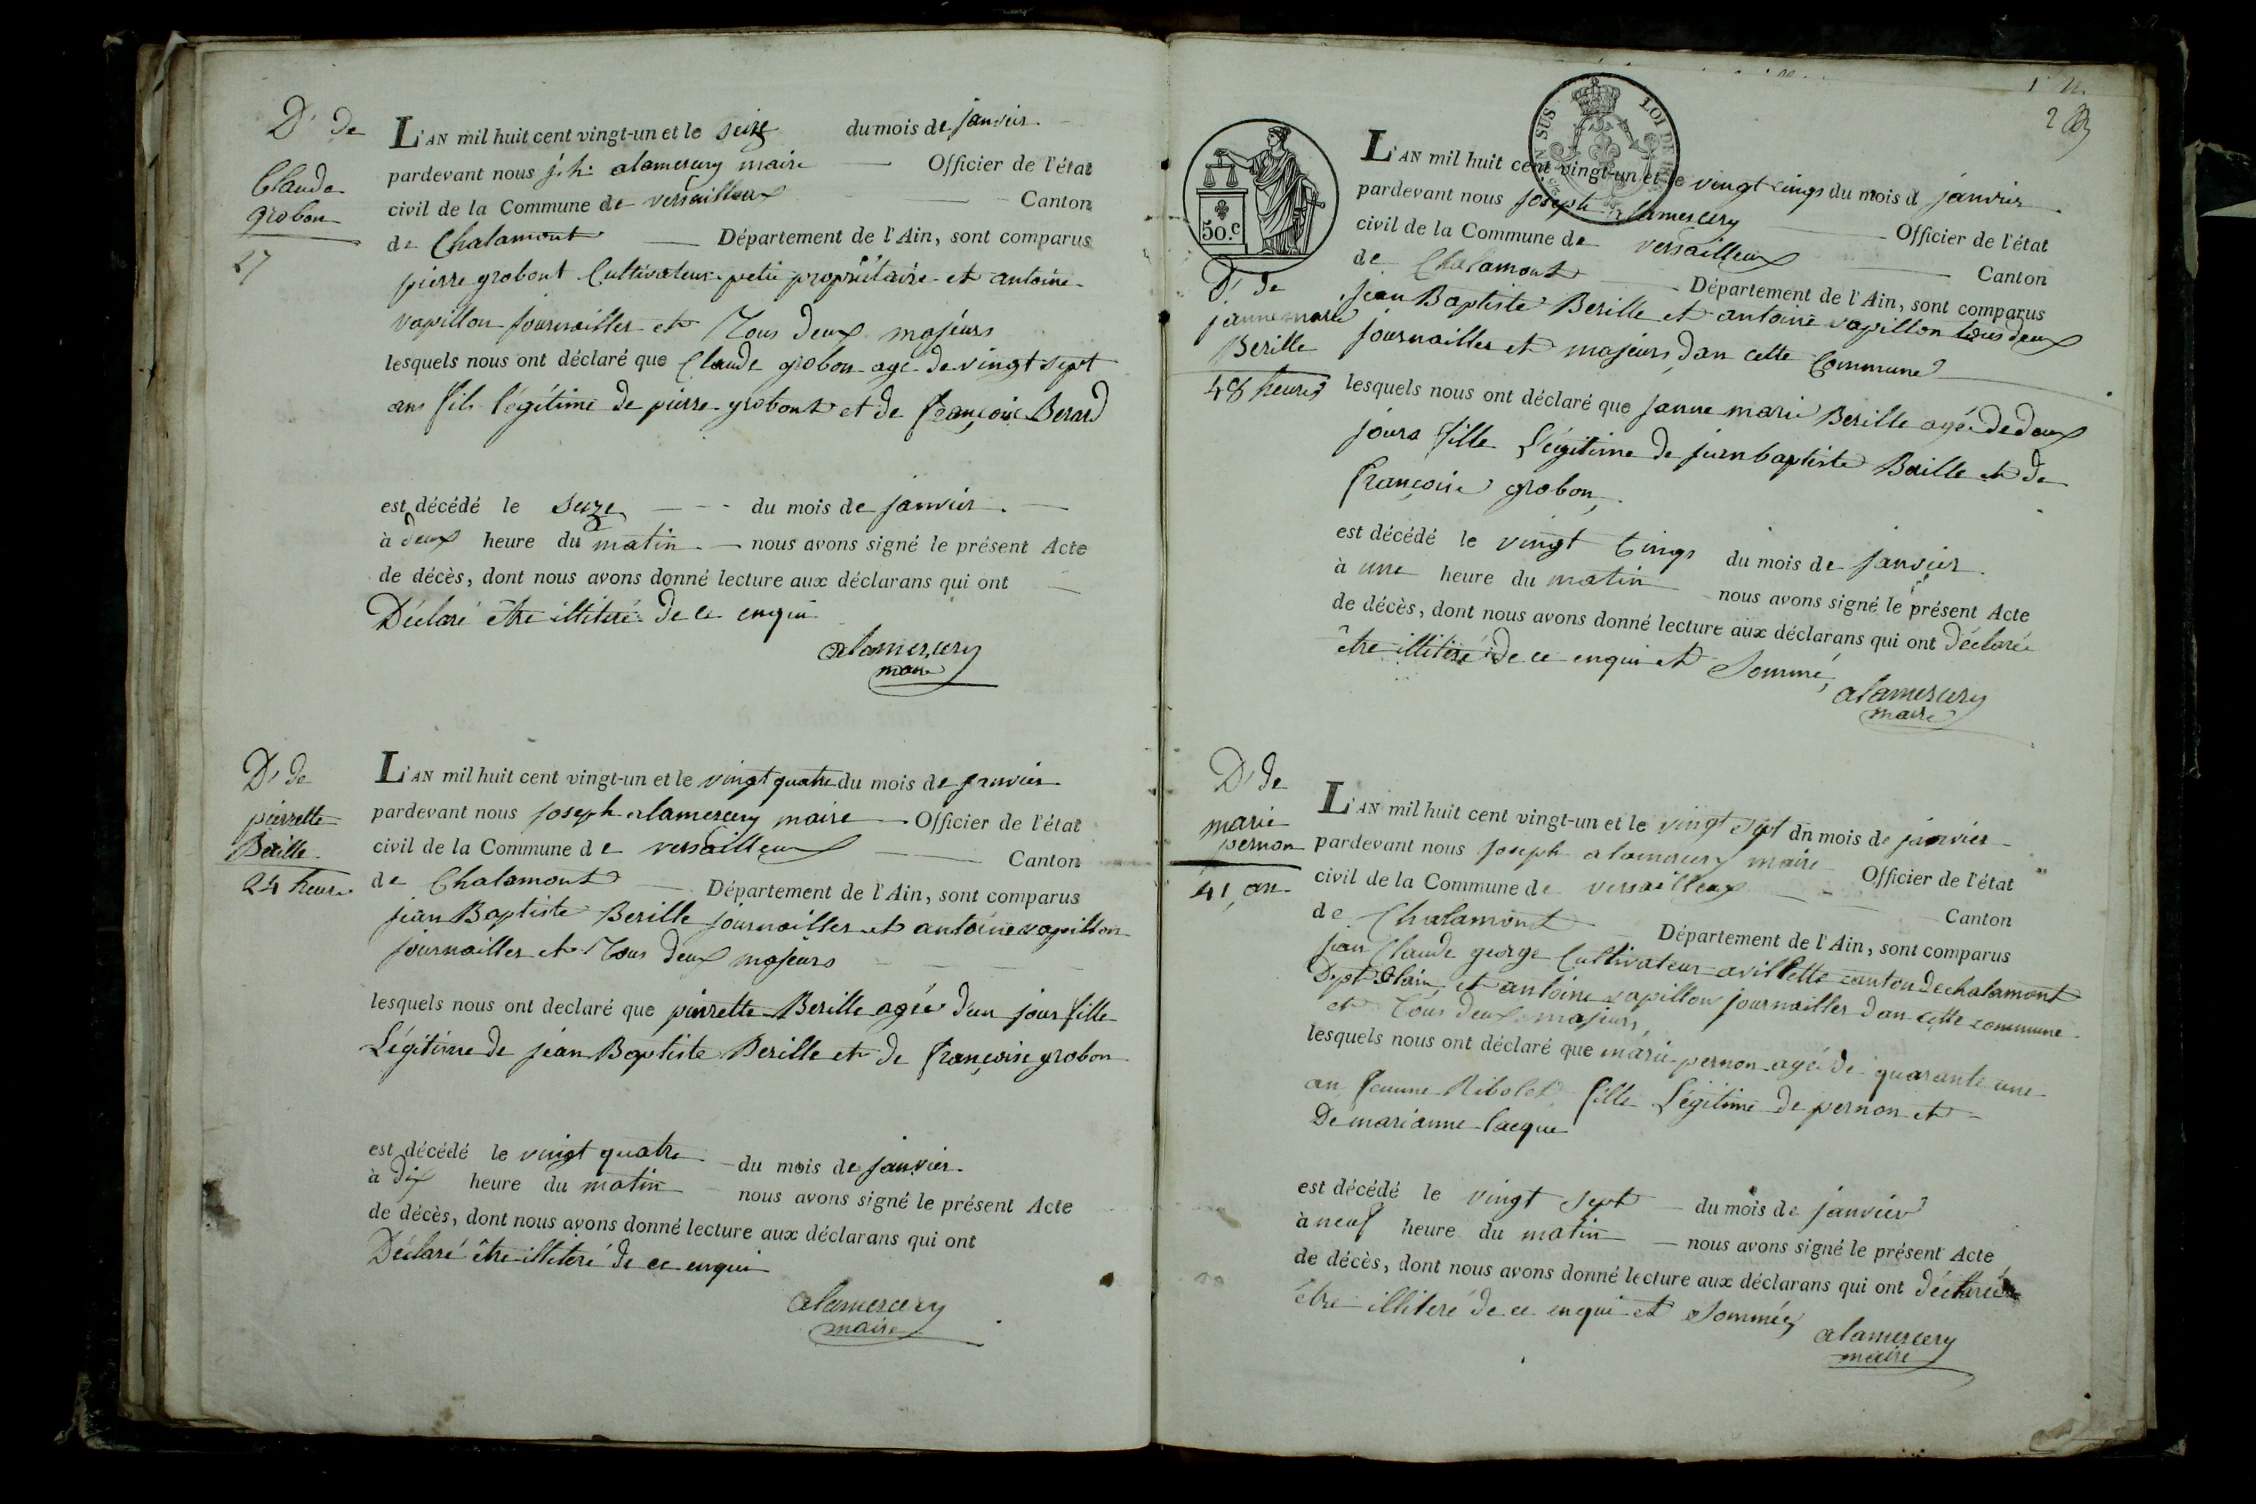 Ds de
Claude
grobon
27
L'AN mil huit cent vingt-un et le seize du mois de janvier
pardevant nous j.h. alamercery maire Officier de l'état
civil de la Commune de versailleux Canton
de Chalamont Département de l'Ain, sont comparus
pierre grobont Cultivateur petit propriétaire et antoine
vapillon journailler et Tous deux majeurs
lesquels nous ont déclaré que Claude grobon age de vingt sept
ans fils légitime de pierre grobont et de françoise Berard
est décédé le seize du mois de janvier
à deux heure du matin nous avons signé le présent Acte
de décès, dont nous avons donné lecture aux déclarans qui ont
Déclaré être illiteré de ce enquis
alamercery
maire
Ds de
pierrette
Berille
24 heure
L'AN mil huit cent vingt-un et le vingt quatre du mois de janvier
pardevant nous joseph alamercery maire Officier de l'état
civil de la Commune de versailleux Canton
de Chalamont Département de l'Ain, sont comparus
jean Baptiste Berille journailler et antoine vapillon
journailler et Tous deux majeurs
lesquels nous ont declaré que pierrette Berille agée d'un jour fille
Légitime de jean Baptiste Berille et de françoise grobon
est décédé le vingt quatre du mois de janvier
à dix heure du matin nous avons signé le présent Acte
de décès, dont nous avons donné lecture aux déclarans qui ont
Déclaré être illiteré de ce enquis
alamercery
maire
2
SUS LOI DE
50.c
Ds de
janne marie
Berille
48 heures
L'AN mil huit cent vingt-un et le vingt cinqs du mois d janvier
pardevant nous joseph alamercery Officier de l'état
civil de la Commune de versailleux Canton
de Chalamont Département de l'Ain, sont comparus
jean Baptiste Berille et antoine vapillon tous deux
journailler et majeurs dan cette Commune
lesquels nous ont déclaré que janne marie Berille agée de deux
jours fille Légitime de jean baptiste Berille et de
françoise grobon
est décédé le vingt Cinqs du mois de janvier
à une heure du matin nous avons signé le présent Acte
de décès, dont nous avons donné lecture aux déclarans qui ont déclaré
être illiteré de ce enquis et Sommé
alamercery
maire
Ds de
marie
pernon
41 an
L'AN mil huit cent vingt-un et le vingt sept dn mois de janvier
pardevant nous joseph alamercery maire Officier de l'état
civil de la Commune de versailleux Canton
de Chalamont Département de l'Ain, sont comparus
jean Claude george Cultivateur a villette canton de chalamont
Dept Dlain, et antoine vapillon journailler dan cette commune
et Tous deux majeurs,
lesquels nous ont déclaré que marie pernon agé de quarante une
an femme Ribolet fille Légitime de pernon et
De marianne lacque
est décédé le vingt sept du mois de janvier
à neuf heure du matin nous avons signé le présent Acte
de décès, dont nous avons donné lecture aux déclarans qui ont déclaré
être illiteré de ce enqui et Sommée
alamercery
maire